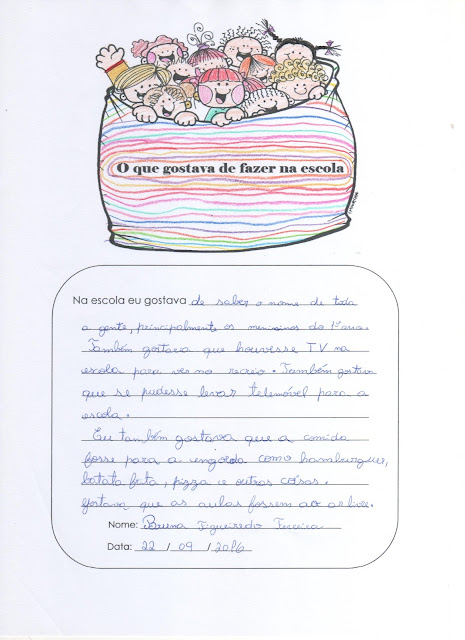 O que gostava de fazer na escola
Na escola eu gostava de saber o nome de toda
a gente, principalmente os meninos do 1º ano.
Também gostava que houvesse TV na
escola para ver no recreio. Também gostava
que se pudesse levar telemóvel para a
escola.
Eu também gostava que a comida
fosse para a engorda como hamburguer,
batata frita, pizza e outras coisas.
Gostava que as aulas fossem ao ar livre.
Nome: Bruna Figueiredo
Data: 22 / 09 / 2016